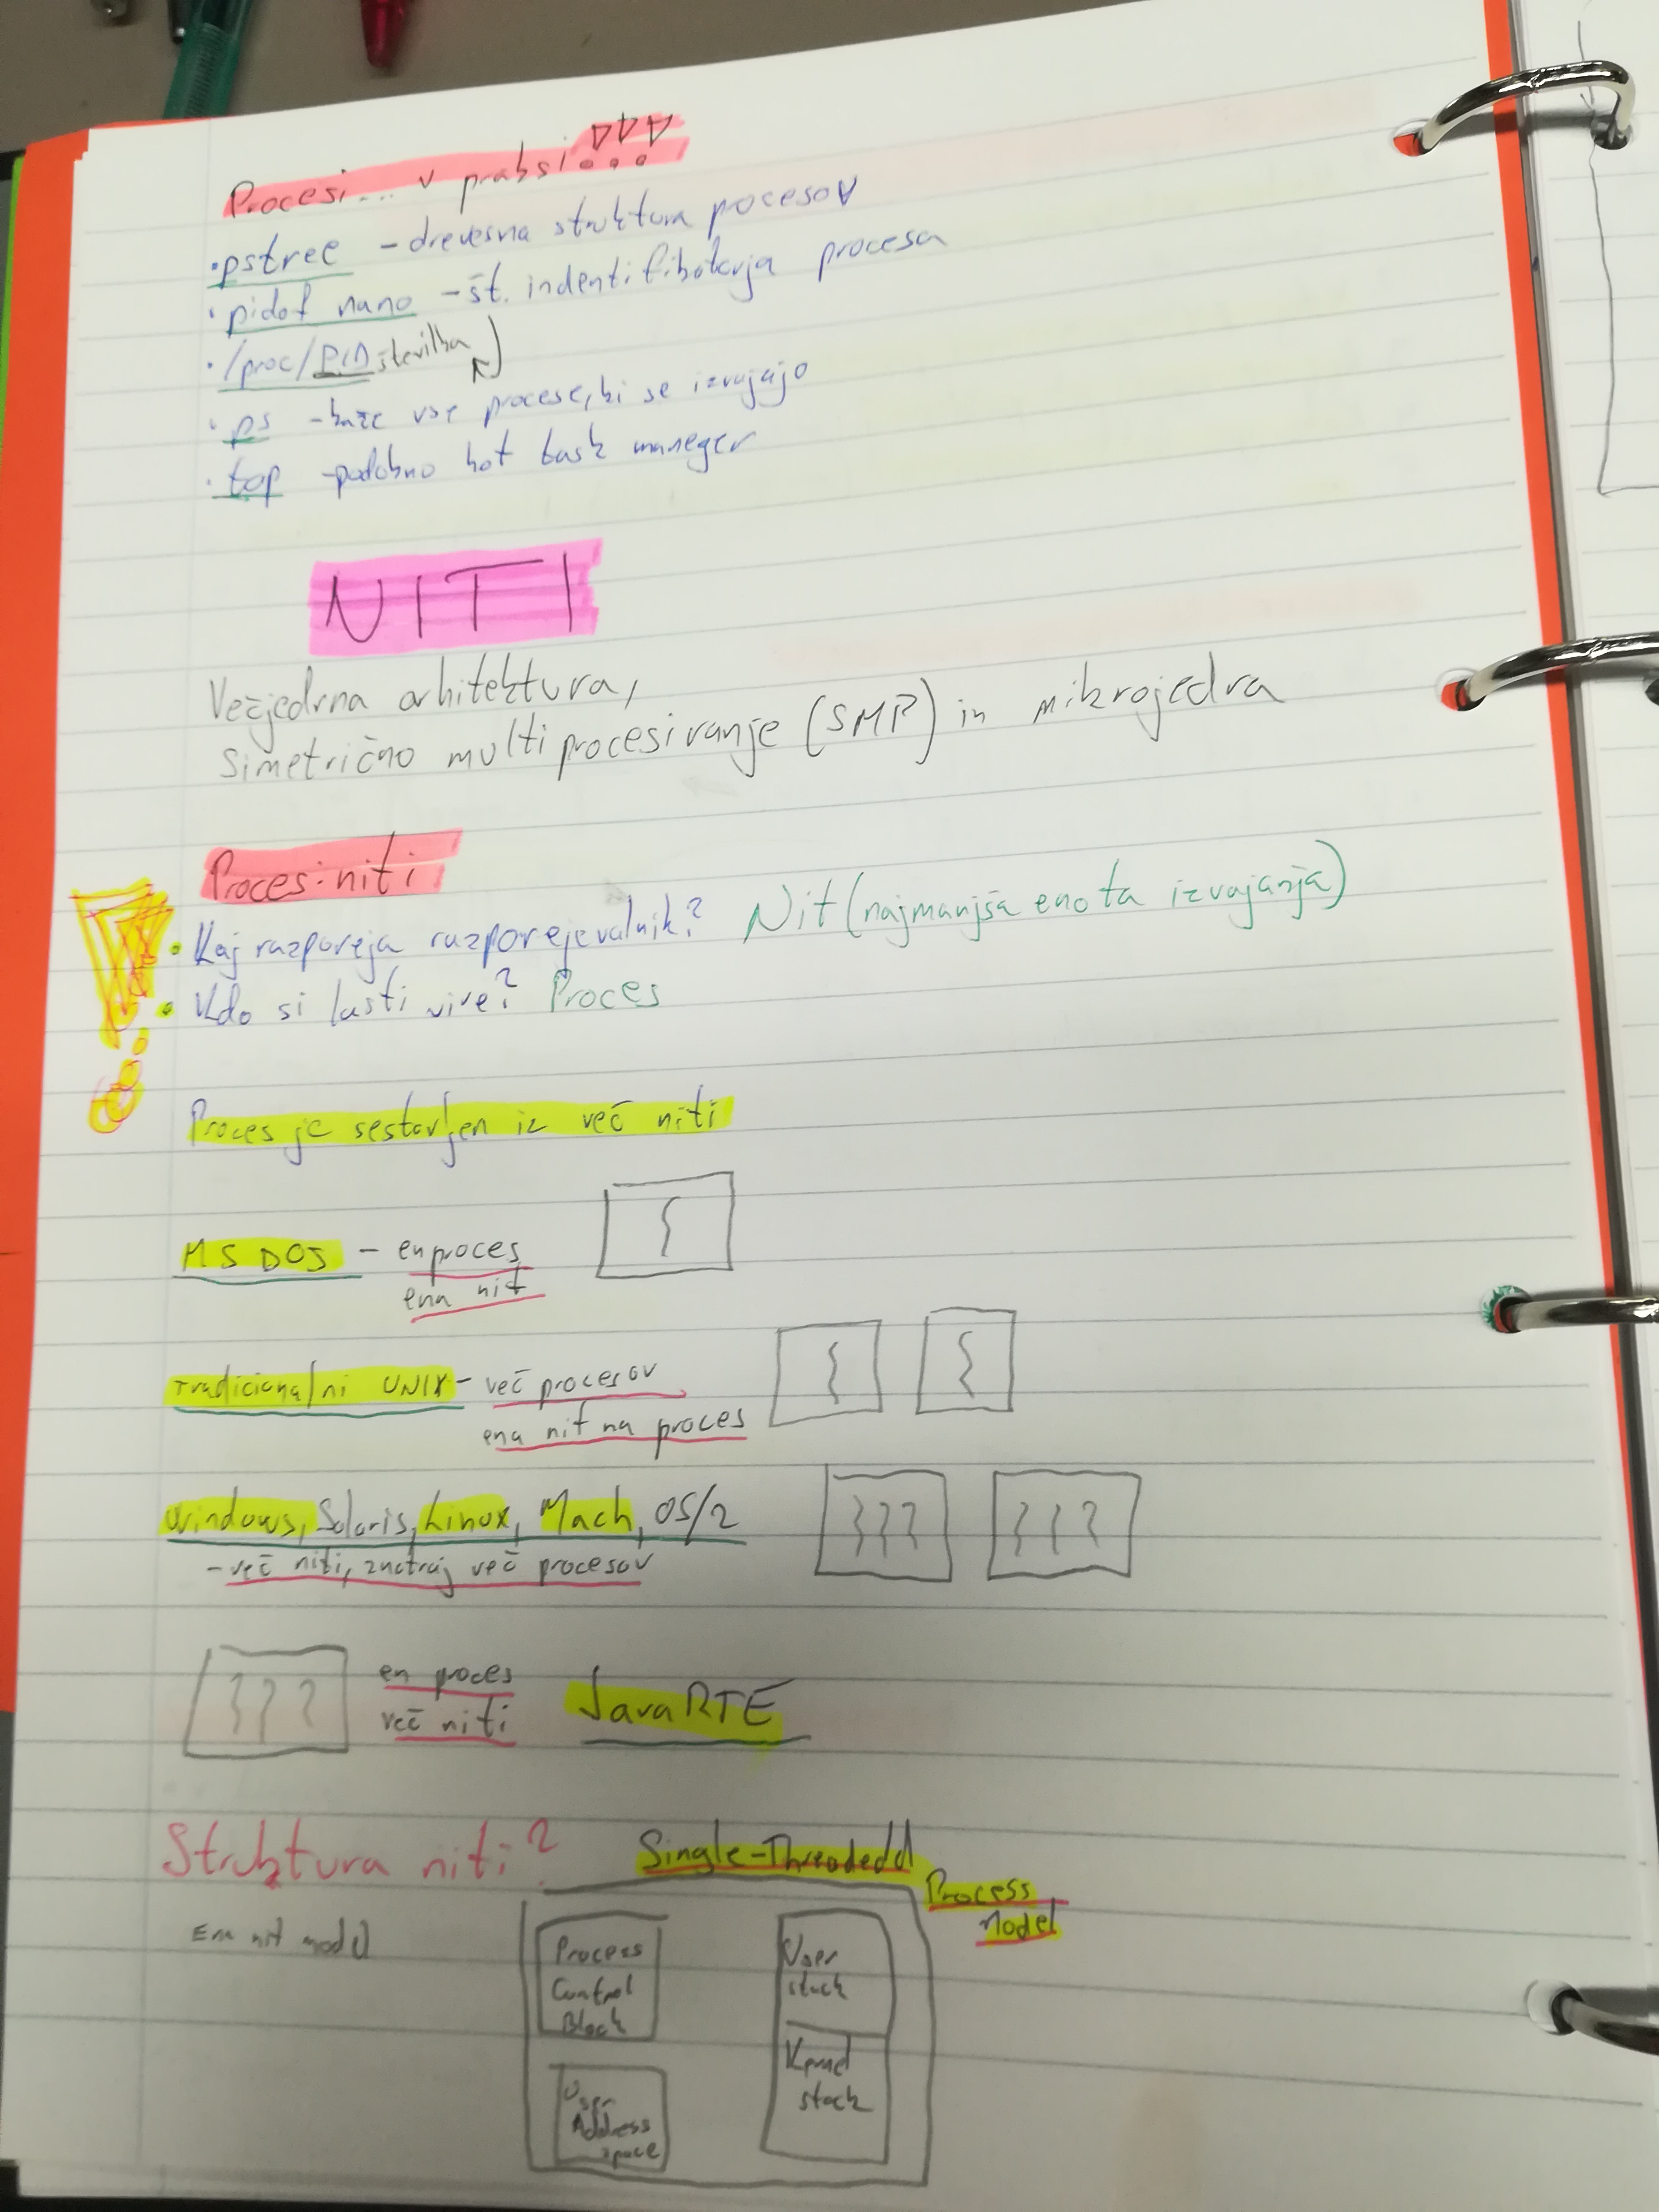 Procesi... v praksi...
• pstree - drevesna struktura pocesov
• pidof nano - št. indentifikatorja procesa
• /proc/PID številka
• ps - kaže vse procese, ki se izvajajo
• top - podobno kot task maneger
NITI
Večjedrna arhitektura,
Simetrično multiprocesiranje (SMP) in mikrojedra
Proces:niti
• Kaj razporeja razporejevalnik? Nit (najmanjša enota izvajanja)
• Kdo si lasti vire? Proces
Proces je sestavljen iz več niti
MS DOS - en proces
ena nit
Tradicionalni UNIX - več procesov
ena nit na proces
Windows, Solaris, Linux, Mach, OS/2
- več niti, znotraj več procesov
en proces
več niti
Java RTE
Struktura niti?
Single-Threadedd
Process
Model
Ena nit model
Process
Control
Block
User
stack
Kernel
stack
User
Address
space